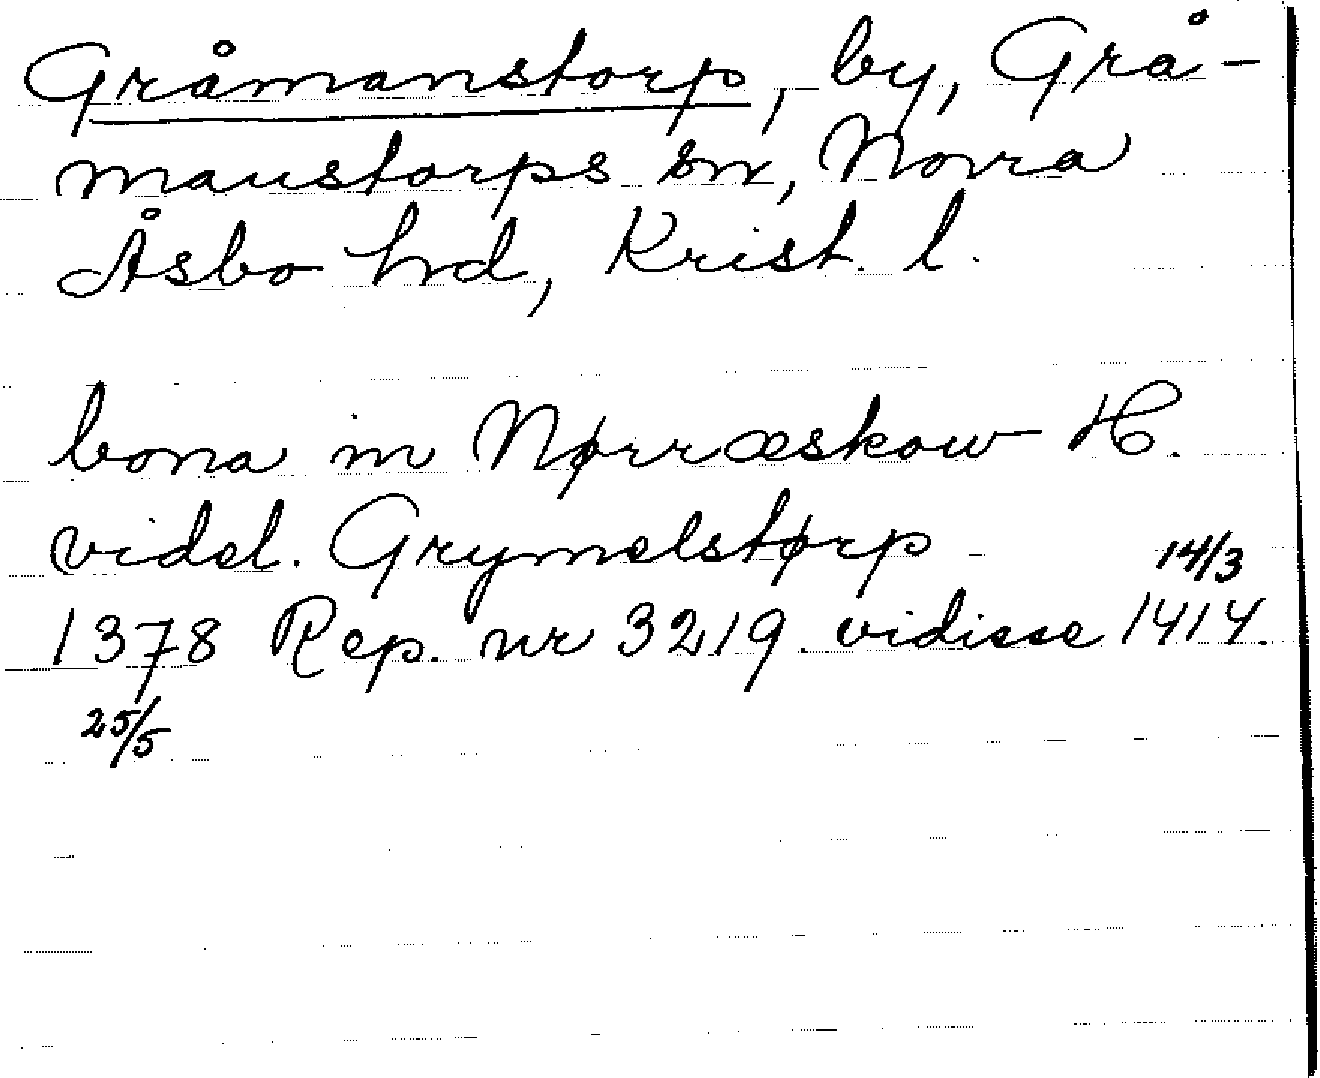 Gråmanstorp, by, Grå-
manstorps sn, Norra
Åsbo hrd, Krist. l.
bona in Nørræskow H.
videl. Grymelstørp
14/3
1378 Rep. nr 3219 vidisse 1414.
25/5